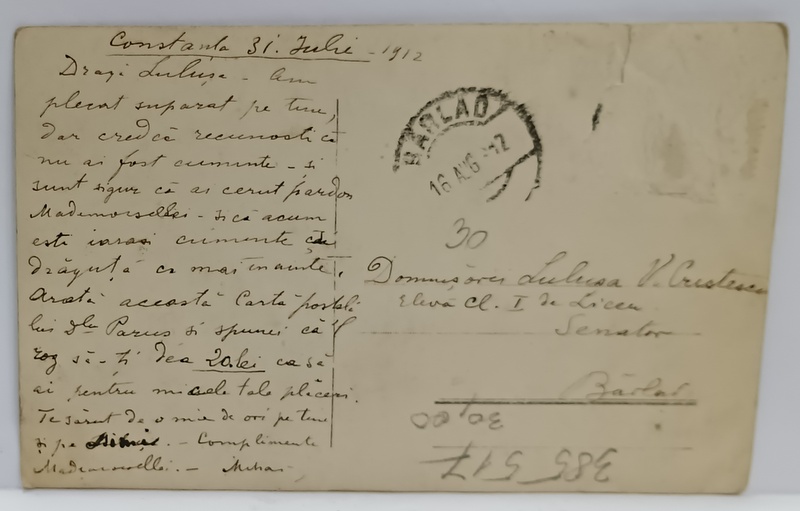 Constanta 31. Iulie - 1912
Dragă Lulușa - Am
plecat suparat pe tine,
dar credcă recunosti că
nu ai fost cuminte - si
sunt sigur că ai cerut pardon
Mademoisellei - si că acum
esti iarasi cuminte
drăguță ca mai inainte.
Arată această Carta postală
lui Dle Parus si spunei că'l
rog să-ți dea 20 lei ca să
ai pentru micele tale plăceri.
Te sărut de o mie de ori pe tine
și pe
- Complimente
Mademoisellei. - Mihai
BARLAD
16 AUG 12
30
Domnișoarei Lulusa V. Cristescu
Elevă Cl. I de Liceu
Senator
Bârlad
30,00
385 517